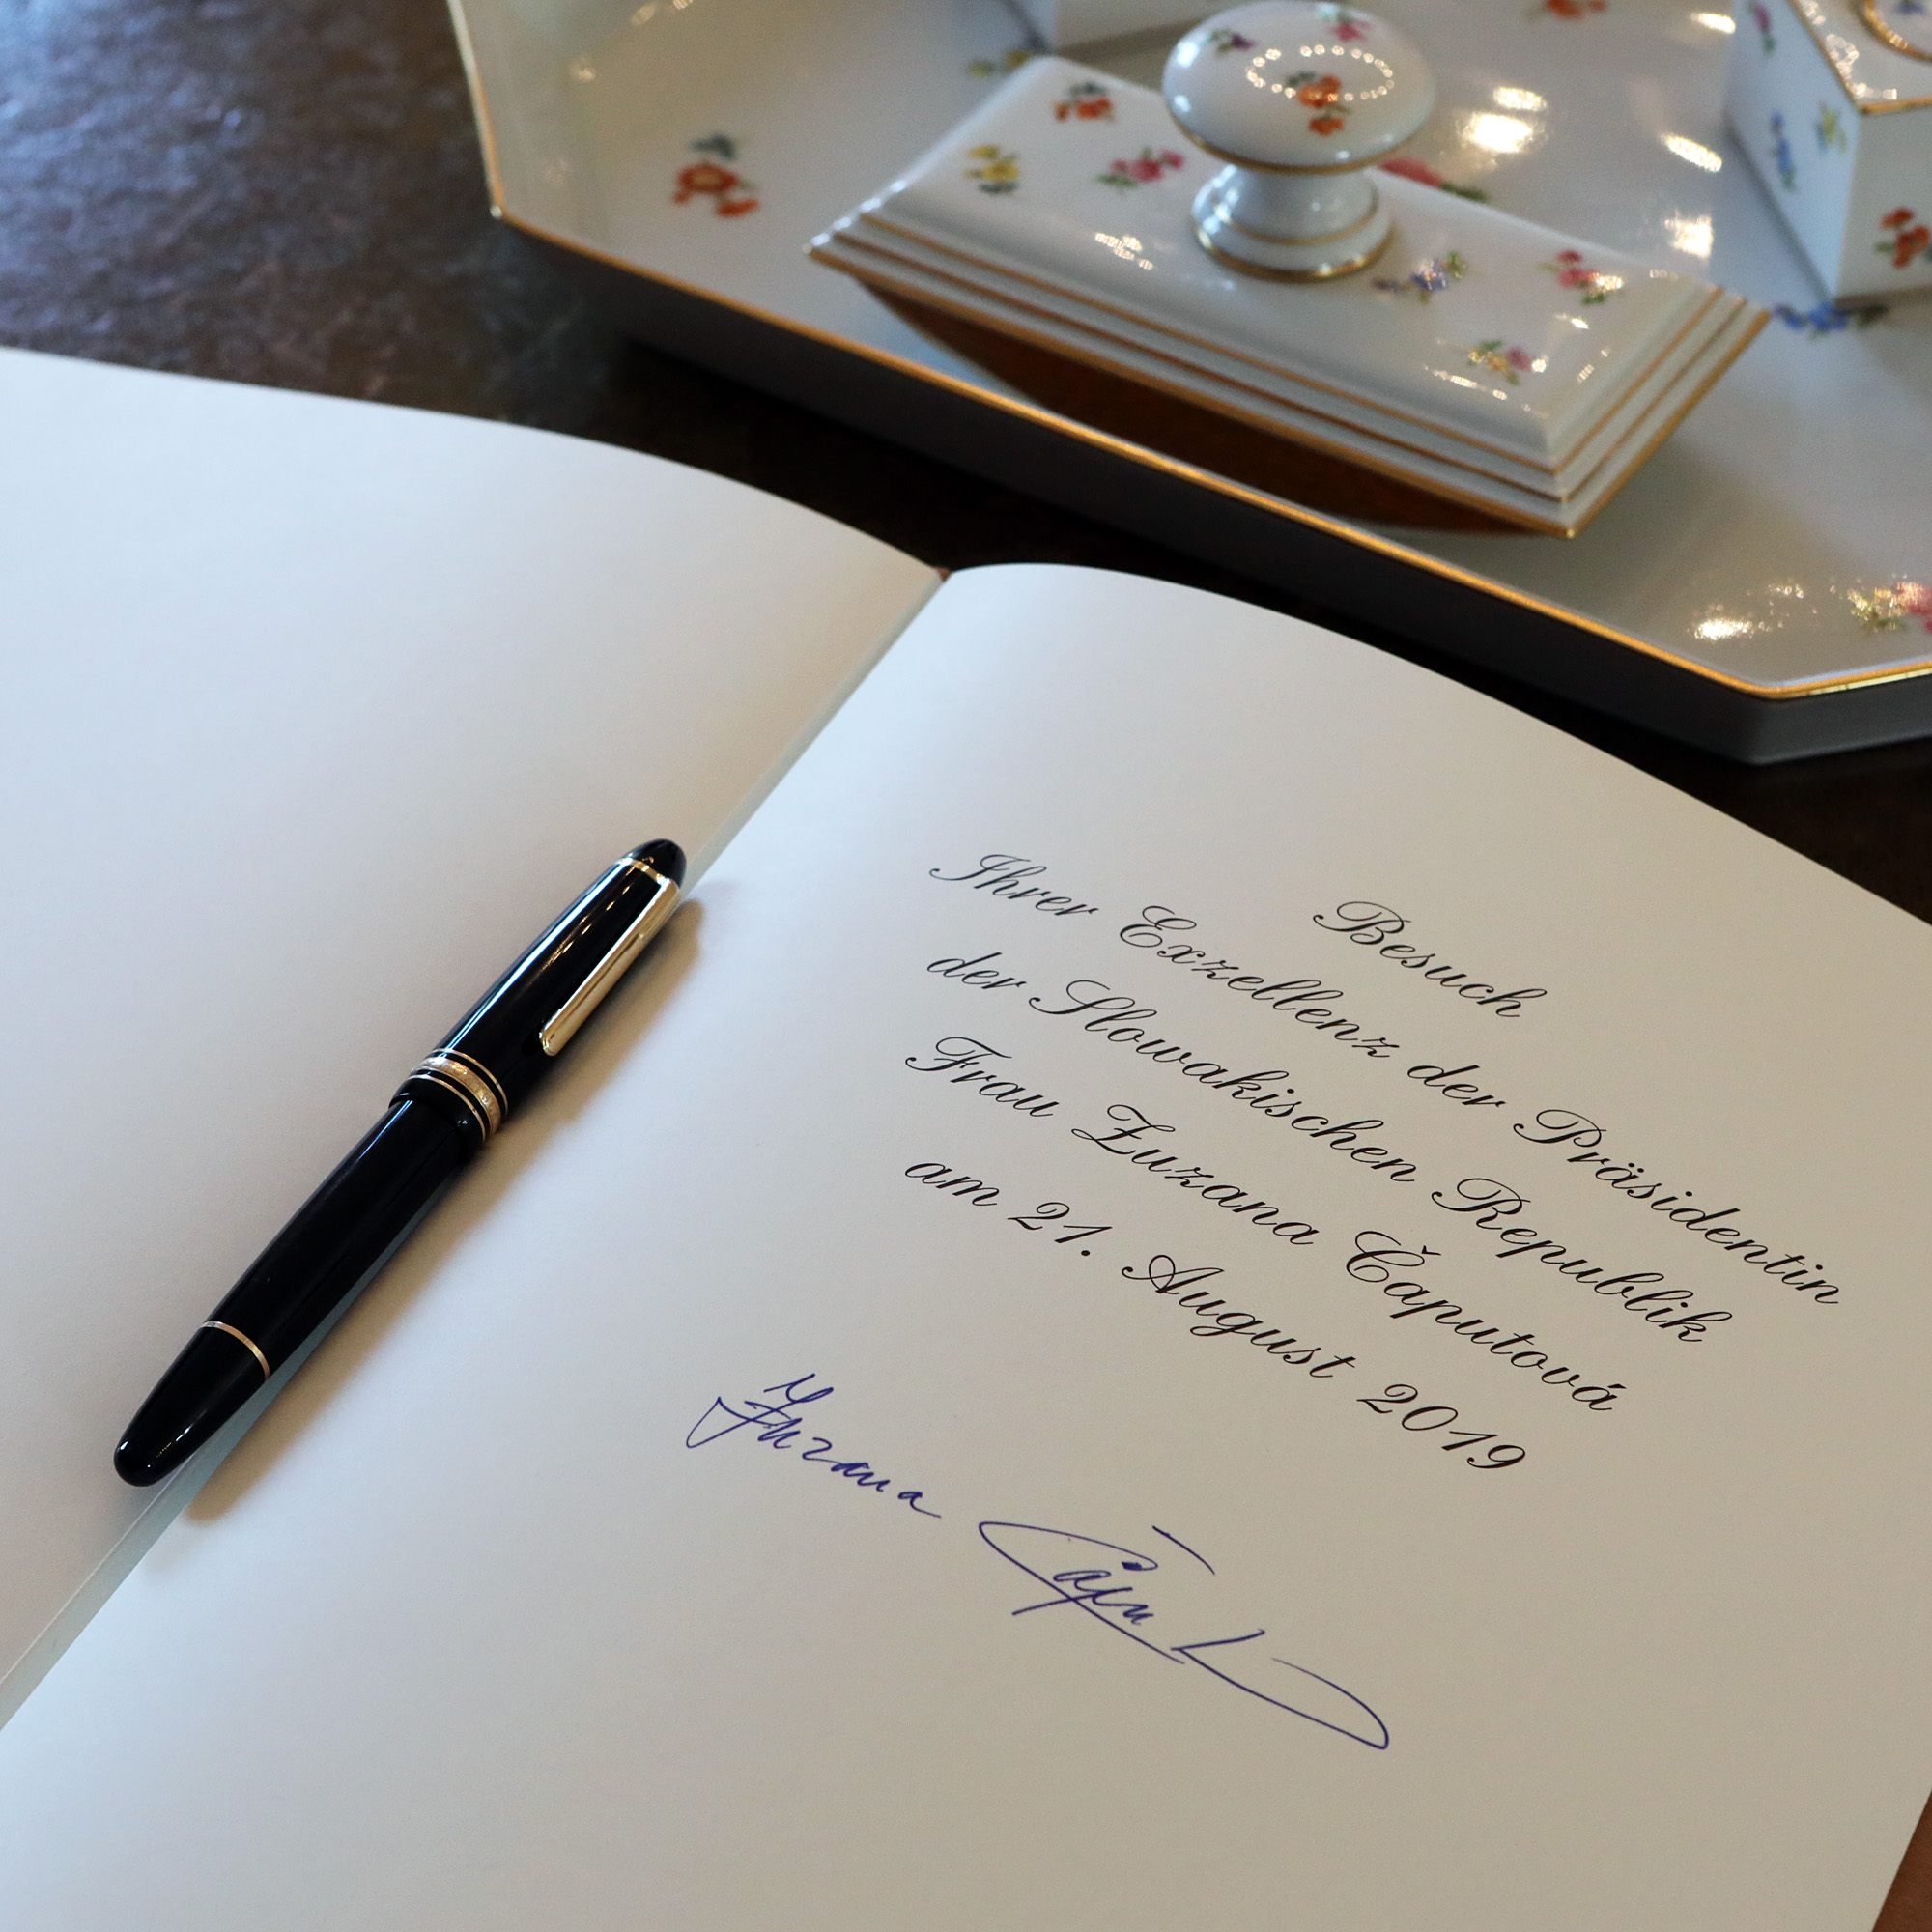 Besuch
Ihrer Exzellenz der Präsidentin
der Slowakischen Republik
Frau Zuzana Čaputová
am 21. August 2019
Zuzana Čaputová